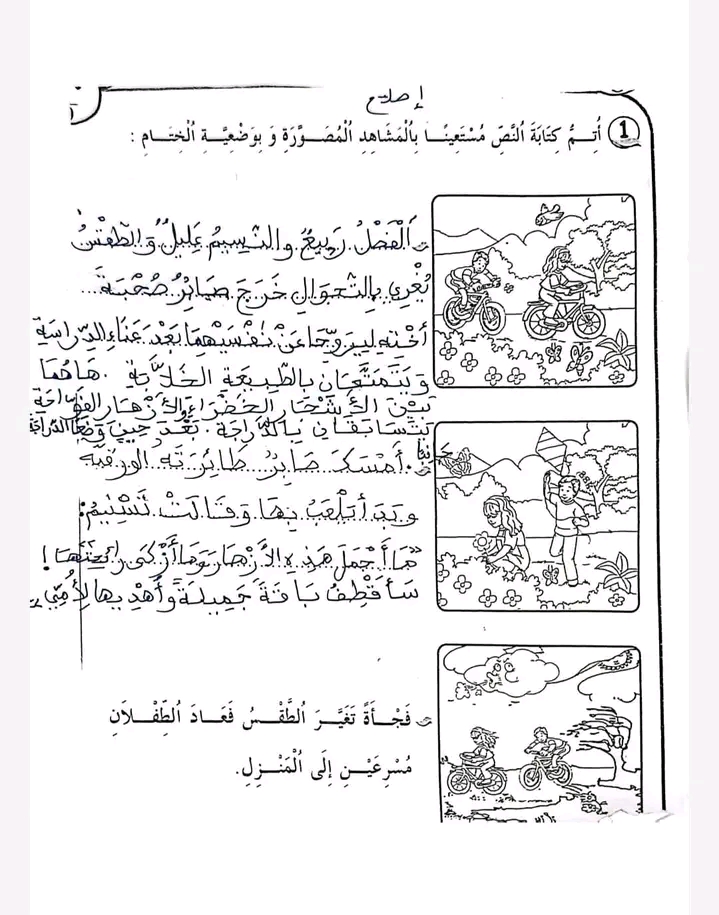 إصلاح
1 أُتِمُّ كِتَابَةَ النَّصِّ مُسْتَعِينًا بِالْمَشَاهِدِ الْمُصَوَّرَةِ وَ بِوَضْعِيَّةِ الْخِتَامِ :
اَلْفَصْلُ رَبِيعٌ والنَّسِيمُ عَلِيلٌ وَالطَّقْسُ
يُغْرِي بِالتَّجْوَالِ خَرَجَ صَابِرُ صُحْبَةَ...
أُخْتِهِ لِيُرَوِّحَا عَنْ نَفْسَيْهِمَا بَعْدَ عَنَاءِ الدِّرَاسَةِ
وَ يَتَمَتَّعَانِ بِالطَّبِيعَةِ الخَلَّابَةِ . هَا هُمَا
بَيْنَ الأَشْجَارِ الخَضْرَاءِ وَالأَزْهَارِ الفَوَّاحَةِ
يَتَسَابَقَانِ بِالدَّرَاجَةِ . بَعْدَ حِينٍ وَضَعَا الدَّرَاجَةَ
جَانِبًا . أَمْسَكَ صَابِرُ طَائِرَتَهُ الوَرَقِيَّة
وبَدَأَ يَلْعَبُ بِهَا وَقَالَتْ تَسْنِيمُ:
"مَا أَجْمَلَ هَذِهِ الأَزْهَار وَمَا أَزْكَى رَائِحَتَهَا !
سَأَقْطِفُ بَاقَةً جَمِيلَةً وَأُهْدِيهَا لِأُمِّي"
فَجْأَةً تَغَيَّرَ الطَّقْسُ فَعَادَ الطِّفْلَانِ
مُسْرِعَيْنِ إِلَى الْمَنْزِلِ.